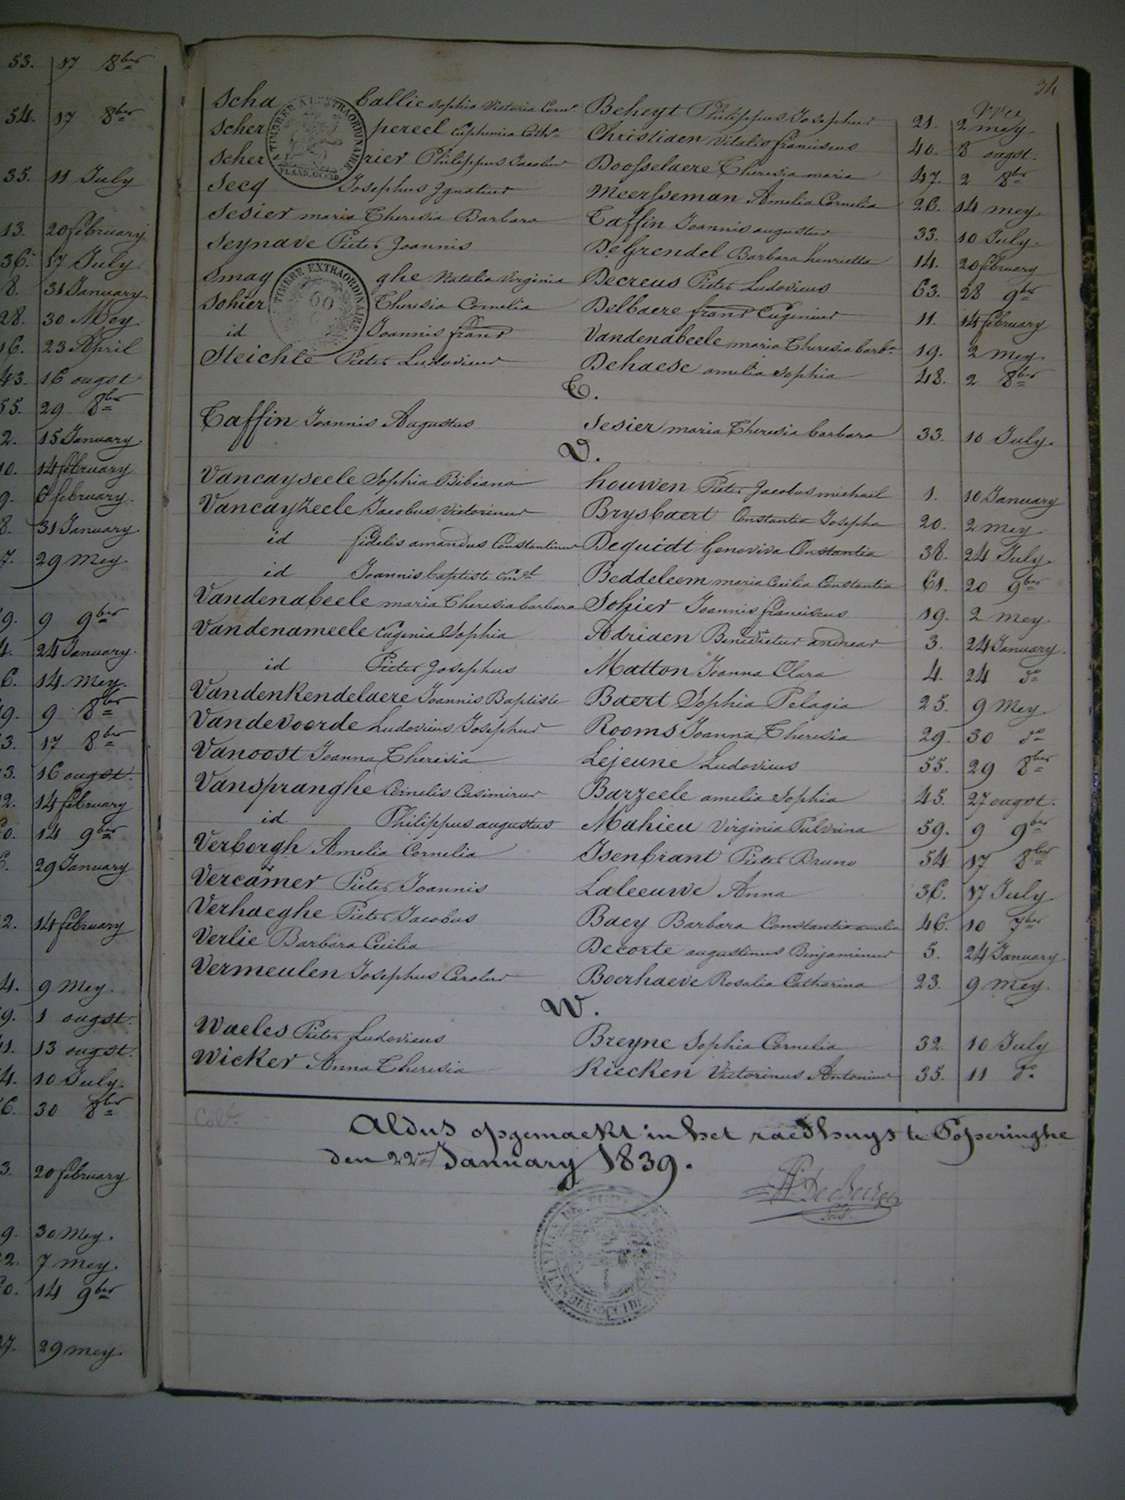 53. 17 8ber
54. 17 8ber
35. 11 July
13. 20 february
36. 17 July
8. 31 January
28. 30 Mey
16. 23 April
43. 16 ougst
55. 29 8ber
2. 15 January
10. 14 february
9. 6 february
8. 31 January
7. 29 Mey
9. 9 9ber
4. 24 January
6. 14 Mey
49. 9 8ber
53. 17 8ber
43. 16 ougst
12. 14 february
60. 14 9ber
6. 29 January
12. 14 february
24. 9 Mey
39. 1 ougst
41. 13 ougst
34. 10 July
56. 30 8ber
13. 20 february
29. 30 Mey
22. 7 mey
60. 14 9ber
27. 29 mey
34
Scha Callie Sophia Victoria Corn Beheyt Philippus Josephus 21. 2 mey
Scher pereel Euphemia Cath Christiaen Vitalis franciscus 40. 8 ougst
Scher rier Philippus Jacobus Doosselaere Theresia maria 47. 2 8ber
Secq Josephus Ignatius Meersseman Amelia Cornelia 26. 14 mey
Sesier maria Theresia Barbara Taffin Joannis augustus 33. 10 July
Seynave Pieter Joannis DeGrendel Barbara henrietta 14. 20 february
Smag ghe Natalia Virginia Decreus Pieter Ludovicus 63. 28 9ber
Sohier Theresia Cornelia Delbaere frans Eugenius 11. 14 february
id Joannis frans Vandenabeele maria Theresia barba 19. 2 mey
Steichte Pieter Ludovicus Dehaese amelia Sophia 48. 2 8ber
T.
Taffin Joannis Augustus Sesier maria Theresia barbara 33. 10 July
V.
Vancayseele Sophia Bibiana houwen Pieter Jacobus michael 1. 10 January
Vancayzeele Jacobus Victorinus Brysbaert Constantia Josepha 20. 2 mey
id fidelis amandus Constantinus Dequidt Genoviva Constantia 38. 24 July
id Joannis baptiste Const Beddeleem maria Cecilia Constantia 61. 20 9ber
Vandenabeele maria Theresia barbara Sohier Joannis franciscus 19. 2 mey
Vandenameele Eugenia Sophia Adriaen Benedictus andreas 3. 24 January
id Pieter Josephus Matton Joanna Clara 4. 24 do
Vandenkendelaere Joannis Baptiste Baert Sophia Pelagia 25. 9 Mey
Vandevoorde Ludovicus Josephus Rooms Joanna Theresia 29. 30 do
Vanoost Joanna Theresia Lejeune Ludovicus 55. 29 8ber
Vanspranghe Cornelis Casimirus Barzeele amelia Sophia 45. 27 ougst
id Philippus augustus Mahieu Virginia Pulvrina 59. 9 9ber
Verborgh Amelia Cornelia Isenbrant Pieter Bruno 54. 17 8ber
Vercamer Pieter Joannis Laleeuwe Anna 36. 17 July
Verhaeghe Pieter Jacobus Baey Barbara Constantia amelia 46. 10 7ber
Verlie Barbara Cecilia Decorte augustinus Binjaminus 5. 24 January
Vermeulen Josephus Carolus Boerhaeve Rosalia Catharina 23. 9 Mey
W.
Waeles Pieter Ludovicus Breyne Sophia Cornelia 32. 10 July
Wicker Anna Theresia Riecken Victorinus Antonius 35. 11 do
Aldus opgemaekt in het raedhuys te Poperinghe
den 22 January 1839.
TIMBRE EXTRAORDINAIRE
TIMBRE EXTRAORDINAIRE